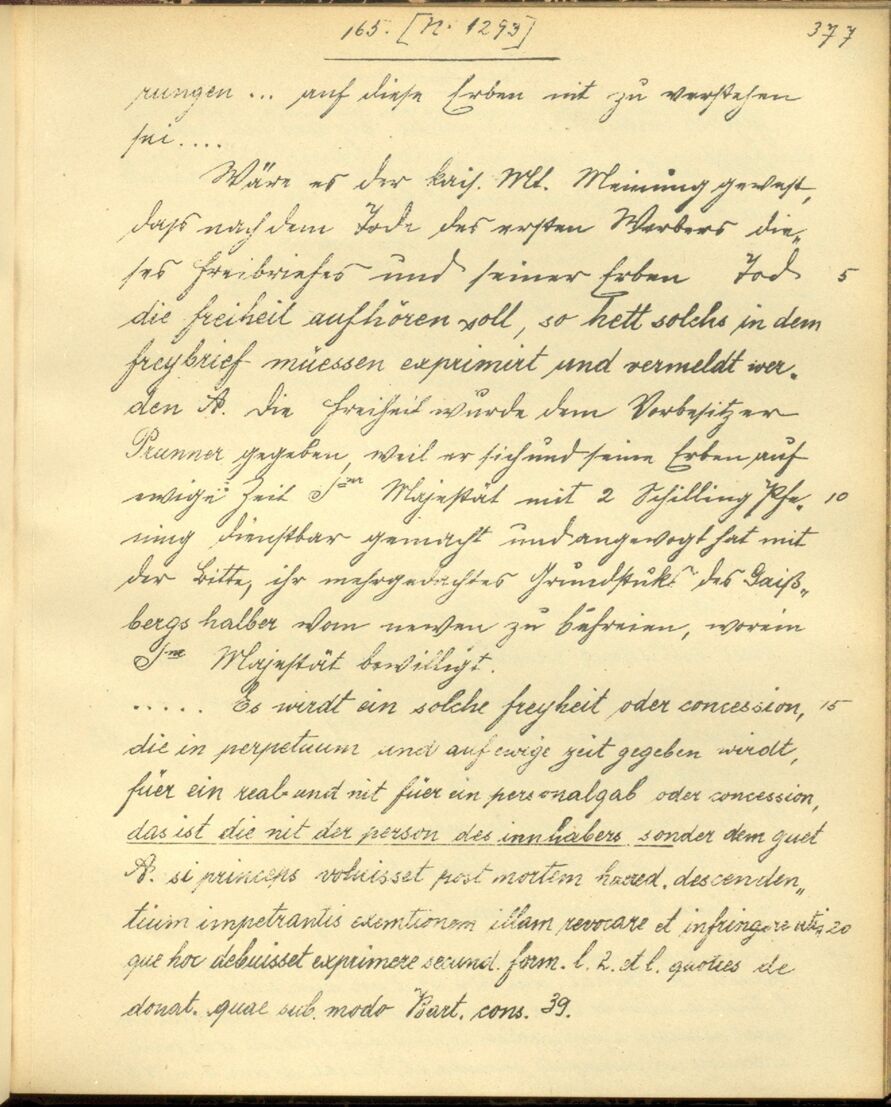 165. [N. 1293] 377
rungen ... auf diese Erben nit zu verstehen
sei ....
Wäre es der kais. Mt. Meinung gewest,
dass nach dem Tode des ersten Werbers die„
ses Freibriefes und seiner Erben Tod 5
die freiheit aufhören soll, so hett solchs in dem
freybrief müessen exprimirt und vermeldt wer„
den A. Die Freiheit wurde dem Vorbesitzer
Prunner gegeben, weil er sich und seine Erben auf
ewige Zeit Ir Majestät mit 2 Schilling Pfe„ 10
ning dienstbar gemacht und angevogt hat mit
der Bitte, ihr mehrgedachtes Grundstuks des Gaiß„
bergs halber vom newen zu befreien, worein
Ire Majestät bewilligt.
..... Es wirdt ein solche freyheit oder concession, 15
die in perpetuum und auf ewige zeit gegeben wirdt,
füer ein real- und nit füer ein personalgab oder concession,
das ist die nit der person des innhabers sonder dem guet
A. si princeps voluisset post mortem haered. descenden„
tium impetrantis exemtionem illam revocare et infringere uti„ 20
que hoc debuisset exprimere secund. form. l. 2. et l. quoties de
donat. quae sub. modo Bart. cons. 39.